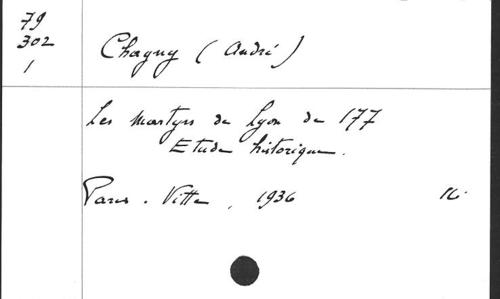 79
302
1
Chagny (André)
Les martyrs de Lyon de 177
Etude historique.
Paris. Vitte, 1936 16